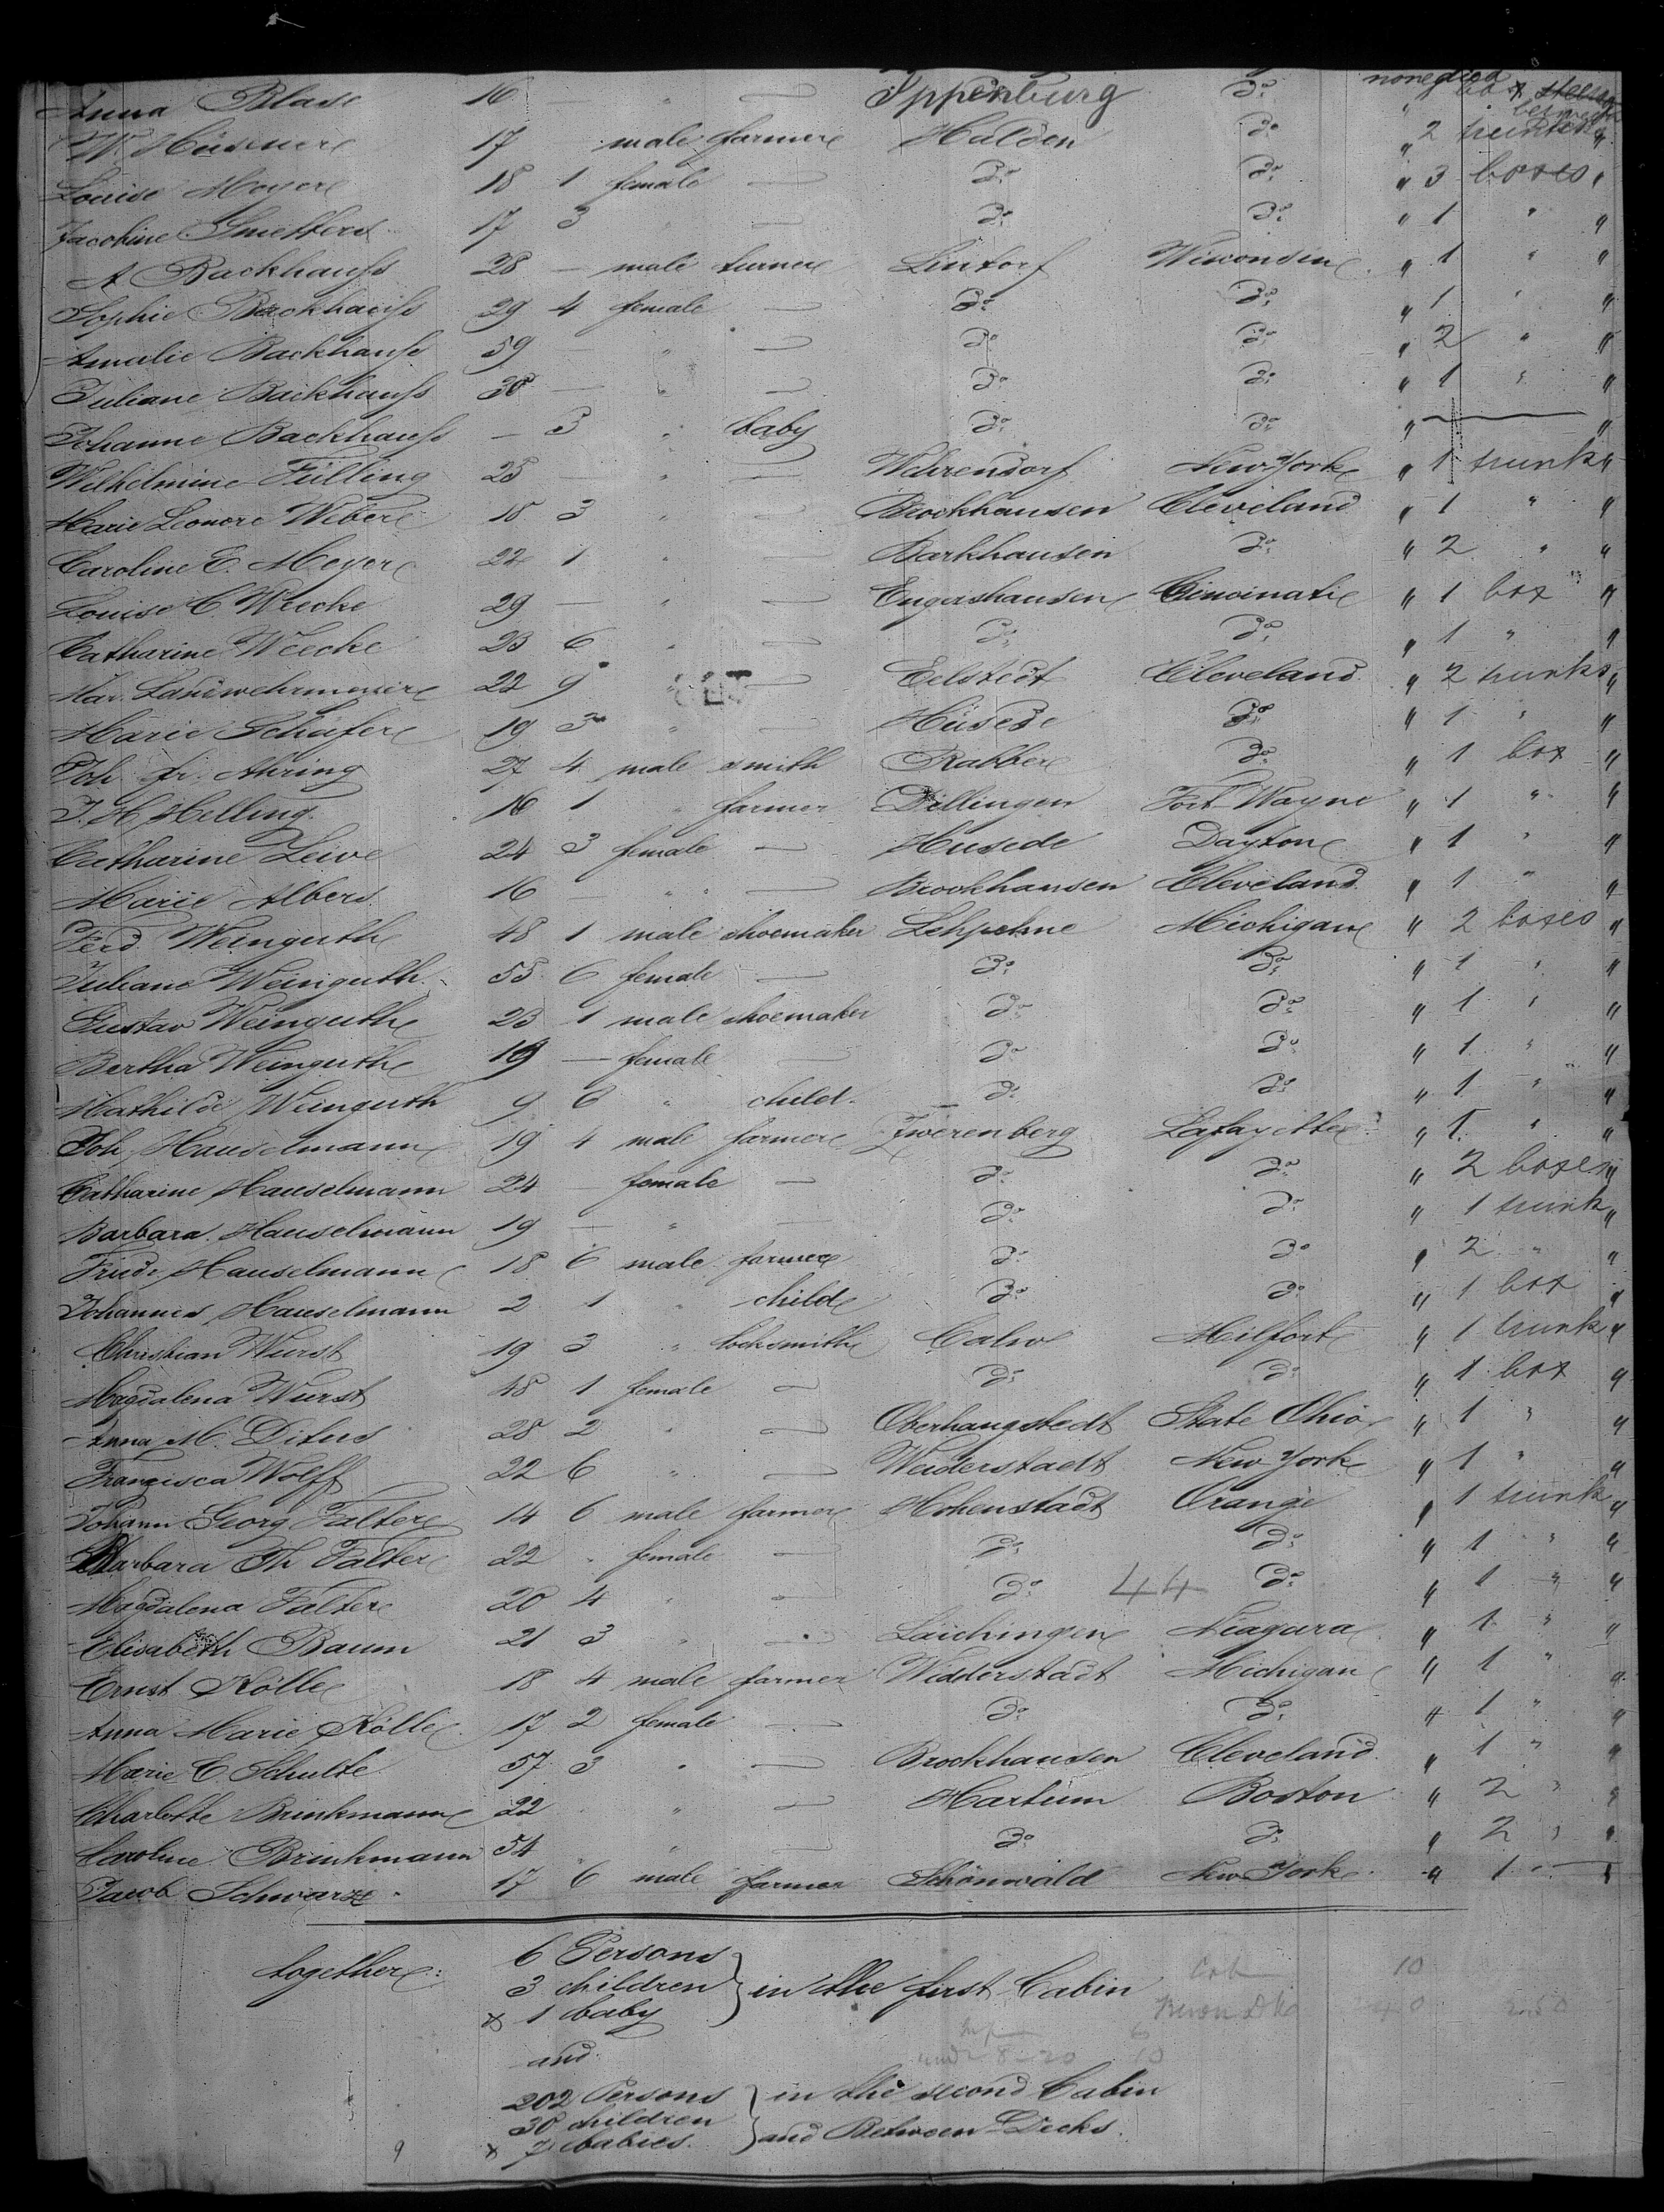 Anna Blase 16 " — Ippenburg do none died " box steerage
W. Hüsener 17 male farmer Halden do " 2 trunks "
Louise Meyer 18 1 female — do do " 3 boxes "
Jacobine 17 3 " — do do " 1 " "
A Backhauss 28 — male turner Lintorf Wisconsin " 1 " "
Sophie Backhauss 29 4 female — do do " 1 " "
Amalie Backhauss 59 " — do do " 2 " "
Juliane Backhauss 30 — " — do do " 1 " "
Johanne Backhauss — 3 " baby do do " — "
Wilhelmine Fülling 25 — " — Wehrendorf New York " 1 trunk "
Marie Leonore Weber 18 3 " — Brockhausen Cleveland " 1 " "
Caroline E. Meyer 22 1 " — Barkhausen do " 2 " "
Louise C. Weecke 29 — " — Engershausen Cincinati " 1 box "
Catharine Weecke 23 6 " — do do " 1 " "
Mar. Landwehrmeier 22 9 " — Eelstedt Cleveland " 2 trunks "
Marie Schäfer 19 3 " — Hüsede do " 1 " "
Joh. fr. Ahring 27 4 male smith Rabber do " 1 box "
J. H. Helling 16 1 " farmer Dillingen Fort Wayne " 1 " "
Catharine Leive 24 3 female — Husede Dayton " 1 " "
Marie Albers 16 — " — Brockhausen Cleveland " 1 " "
Ferd. Weinguth 48 1 male shoemaker Michigan " 2 boxes "
Juliane Weinguth 55 6 female — do do " 1 " "
Gustav Weinguth 23 1 male shoemaker do do " 1 " "
Bertha Weinguth 19 — female — do do " 1 " "
Mathilde Weinguth 9 6 " child do do " 1 " "
Joh. Hauselmann 19 4 male farmer Zwerenberg Lafayette " 1 " "
Catharine Hauselmann 24 — female — do do " 2 boxes "
Barbara Hauselmann 19 — " — do do " 1 trunk "
Friedr. Hauselmann 18 6 male farmer do do " 2 " "
Johannes Hauselmann 2 1 " child do do " 1 box "
Christian Wurst 19 3 " locksmith Calw Milfort " 1 trunk "
Magdalena Wurst 48 1 female — do do " 1 box "
Anna M. Ditus 28 2 " — Oberhaugstedt State Ohio " 1 " "
Francisca Wolff 22 6 " — Weiderstadt New York " 1 " "
Johann Georg Falter 14 6 male farmer Hohenstadt Orange " 1 trunk "
Barbara Th Falter 22 " female — do do " 1 " "
Magdalena Falter 20 4 " — do 44 do " 1 " "
Elisabeth Baum 21 3 " — Laichingen Niagara " 1 " "
Ernst Kölle 18 4 male farmer Widderstadt Michigan " 1 " "
Anna Marie Kölle 17 2 female — do do " 1 " "
Marie C. Schulte 57 3 " — Brockhausen Cleveland " 1 " "
Charlotte Brinkmann 22 " — Hartum Boston " 2 " "
Caroline Brinkmann 54 " — do do " 2 " "
Jacob Schwarze 17 6 male farmer Schönwald New York " 1 " "
together: 6 Persons
3 children } in the first Cabin 10
x 1 baby
and
202 Persons } in the second Cabin
30 children } and Between Decks.
x 7 babies.
9